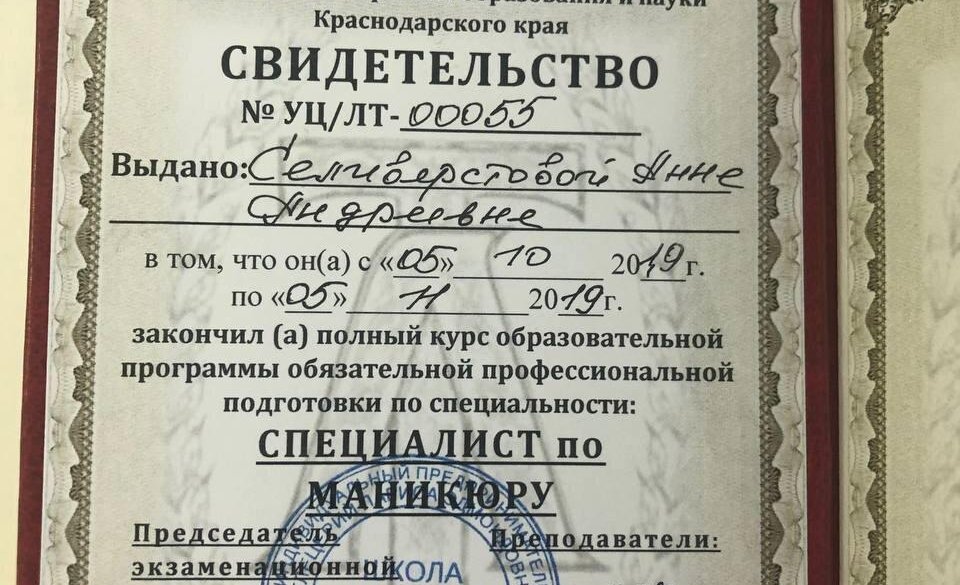 образования и науки
Краснодарского края
СВИДЕТЕЛЬСТВО
№ УЦ/ЛТ-00055
Выдано: Селиверстовой Анне
Андреевне
в том, что он(а) с «05» 10 2019 г.
по «05» 11 2019 г.
закончил (а) полный курс образовательной
программы обязательной профессиональной
подготовки по специальности:
СПЕЦИАЛИСТ по
МАНИКЮРУ
Председатель Преподаватели:
экзаменационной
ШКОЛА